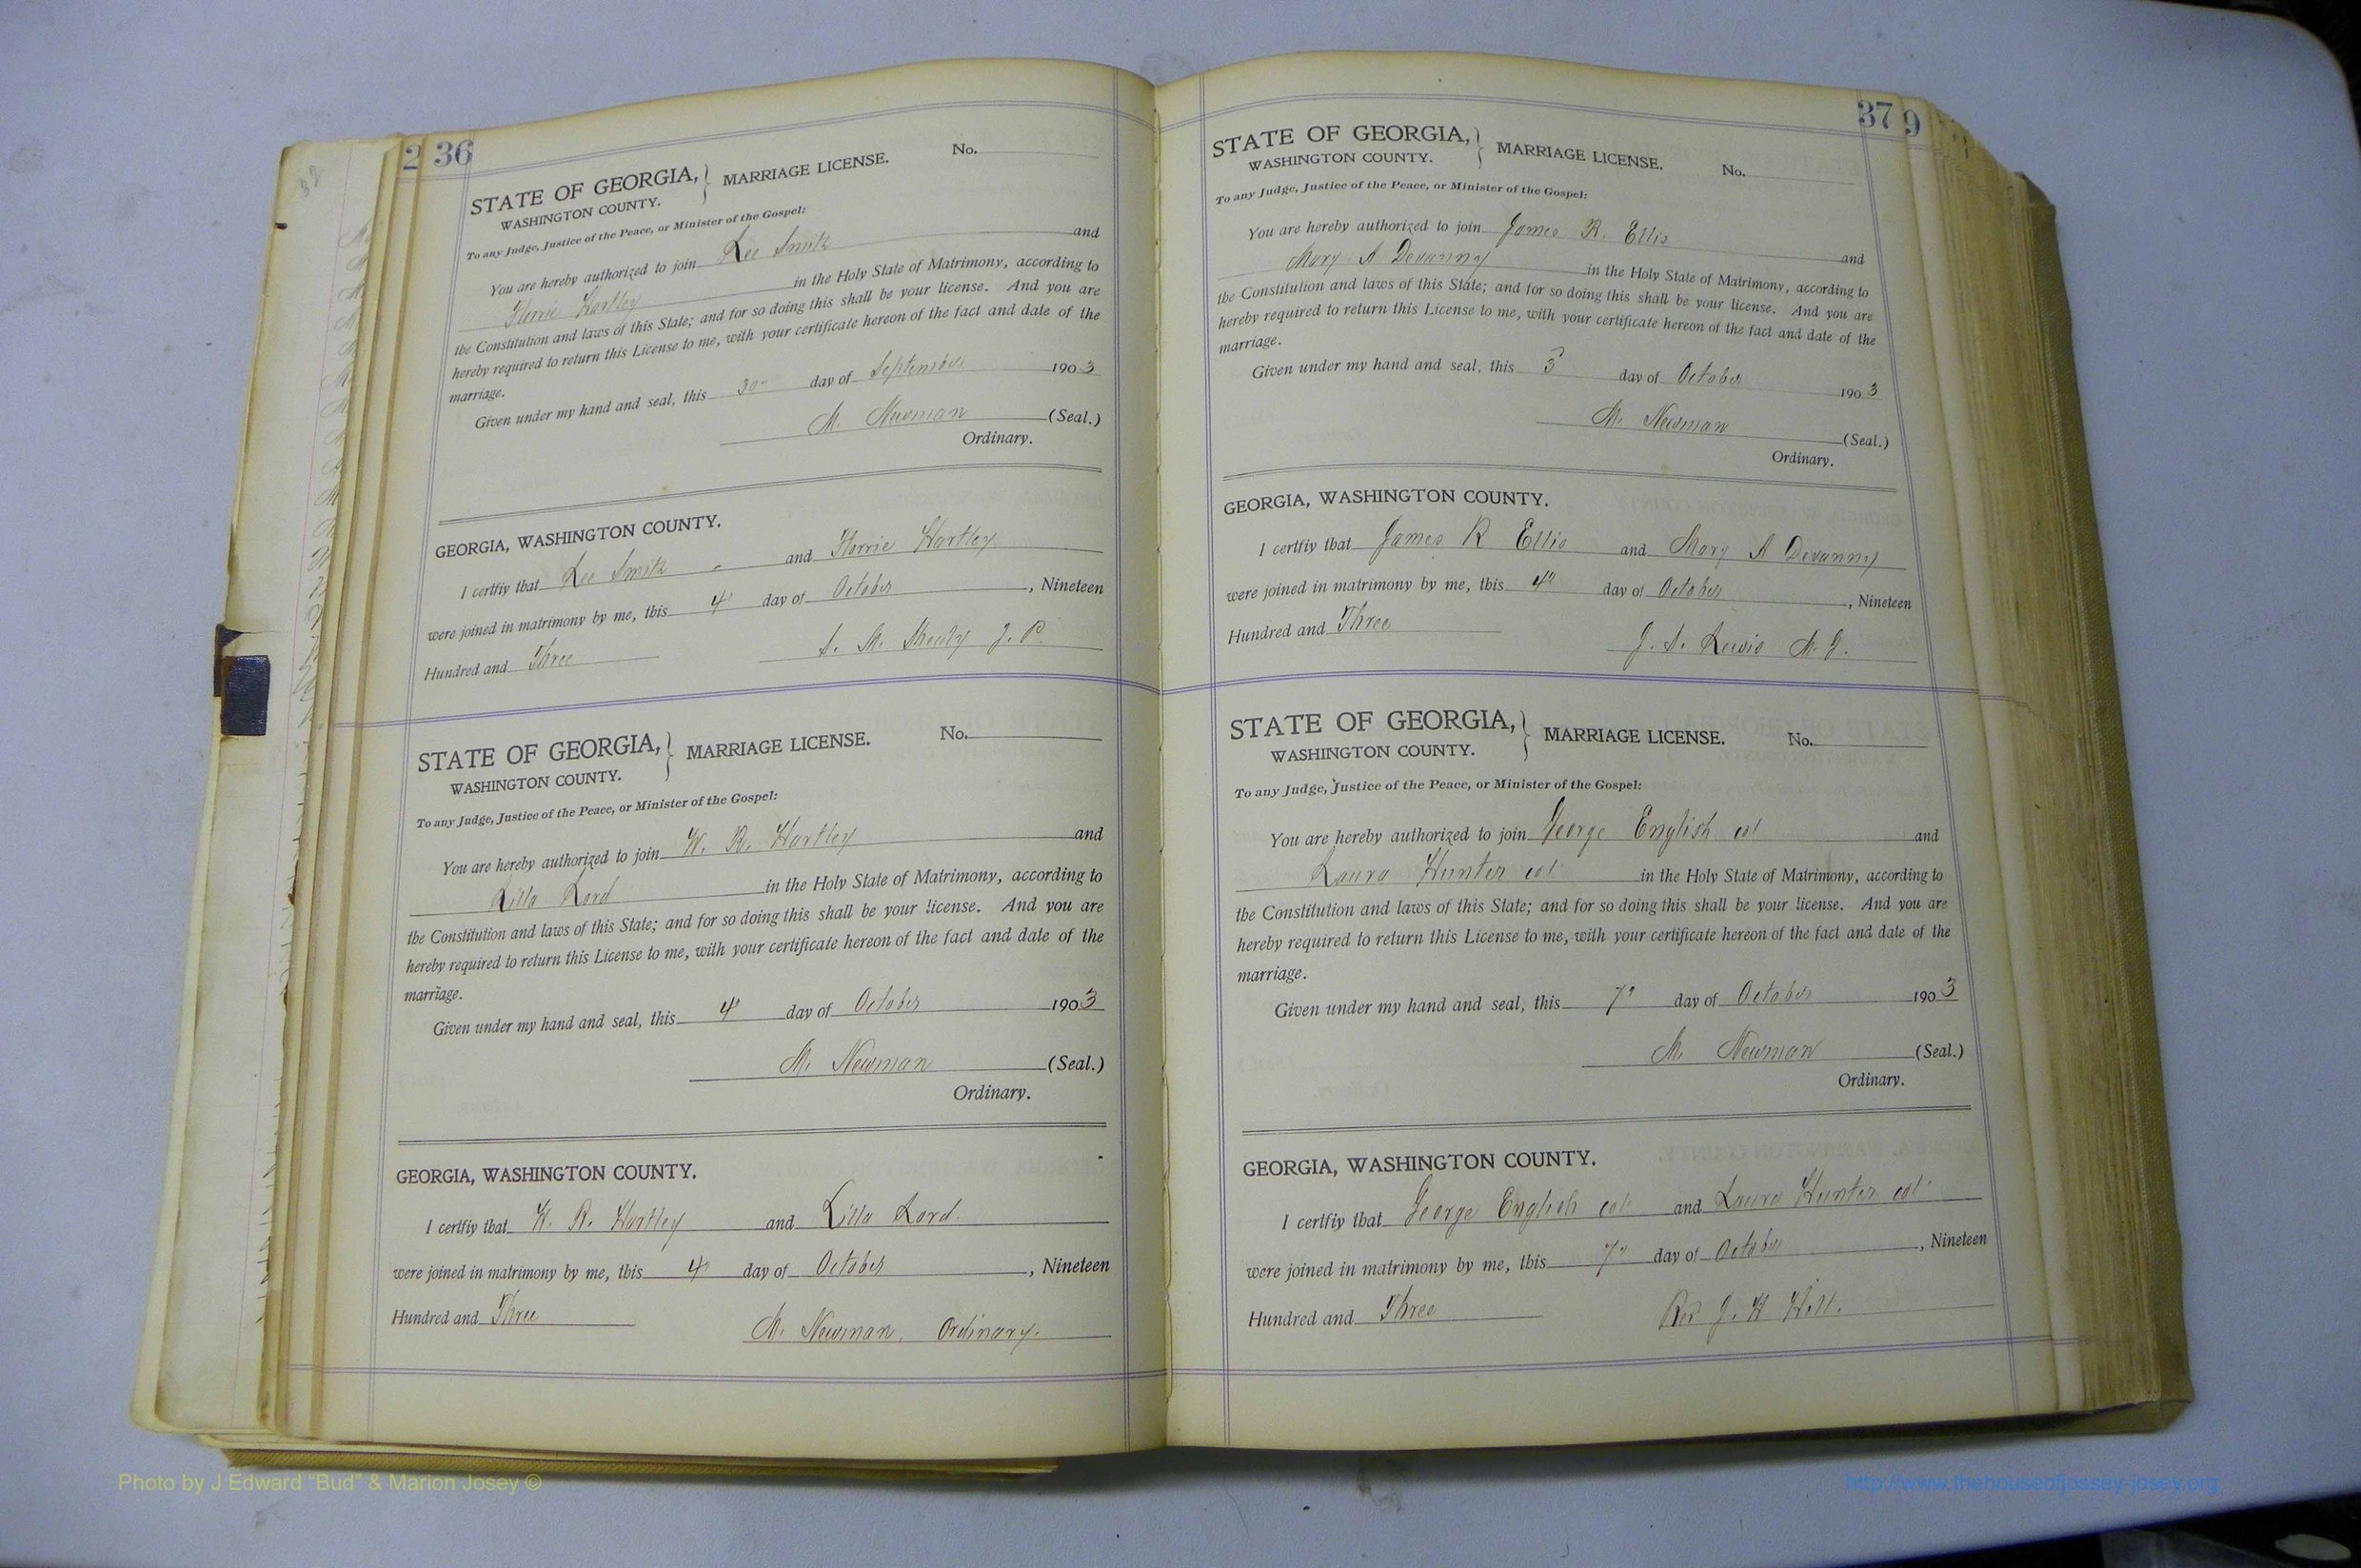 36
STATE OF GEORGIA, MARRIAGE LICENSE. No.
WASHINGTON COUNTY.
To any Judge, Justice of the Peace, or Minister of the Gospel:
You are hereby authorized to join Lee Smith and
Hartley in the Holy State of Matrimony, according to
the Constitution and laws of this State; and for so doing this shall be your license. And you are
hereby required to return this License to me, with your certificate hereon of the fact and date of the
marriage.
Given under my hand and seal, this 30 day of September 1903
M. Newman (Seal.)
Ordinary.
GEORGIA, WASHINGTON COUNTY.
I certfiy that Lee Smith and Hartley
were joined in matrimony by me, this 4 day of October, Nineteen
Hundred and Three
S. M. J. P.
STATE OF GEORGIA, MARRIAGE LICENSE. No.
WASHINGTON COUNTY.
To any Judge, Justice of the Peace, or Minister of the Gospel:
You are hereby authorized to join W. R. Hartley and
Lilla Lord in the Holy State of Matrimony, according to
the Constitution and laws of this State; and for so doing this shall be your license. And you are
hereby required to return this License to me, with your certificate hereon of the fact and date of the
marriage.
Given under my hand and seal, this 4" day of October 1903
M. Newman (Seal.)
Ordinary.
GEORGIA, WASHINGTON COUNTY.
I certfiy that W. R. Hartley and Lilla Lord.
were joined in matrimony by me, this 4" day of October, Nineteen
Hundred and Three
M. Newman, Ordinary.
37
STATE OF GEORGIA, MARRIAGE LICENSE. No.
WASHINGTON COUNTY.
To any Judge, Justice of the Peace, or Minister of the Gospel:
You are hereby authorized to join James R. Ellis and
Mary A Devanny in the Holy State of Matrimony, according to
the Constitution and laws of this State; and for so doing this shall be your license. And you are
hereby required to return this License to me, with your certificate hereon of the fact and date of the
marriage.
Given under my hand and seal, this 3 day of October 1903
M. Newman (Seal.)
Ordinary.
GEORGIA, WASHINGTON COUNTY.
I certfiy that James R Ellis and Mary A Devanny
were joined in matrimony by me, this 4" day of October, Nineteen
Hundred and Three
J. S. Lewis M. G.
STATE OF GEORGIA, MARRIAGE LICENSE. No.
WASHINGTON COUNTY.
To any Judge, Justice of the Peace, or Minister of the Gospel:
You are hereby authorized to join George English col and
Laura Hunter col in the Holy State of Matrimony, according to
the Constitution and laws of this State; and for so doing this shall be your license. And you are
hereby required to return this License to me, with your certificate hereon of the fact and date of the
marriage.
Given under my hand and seal, this 7" day of October 1903
M. Newman (Seal.)
Ordinary.
GEORGIA, WASHINGTON COUNTY.
I certfiy that George English col and Laura Hunter col
were joined in matrimony by me, this 7" day of October, Nineteen
Hundred and Three
Rev J. H Hill.
Photo by J Edward "Bud" & Marion Josey ©
http://www.thehouseofjossey-josey.org